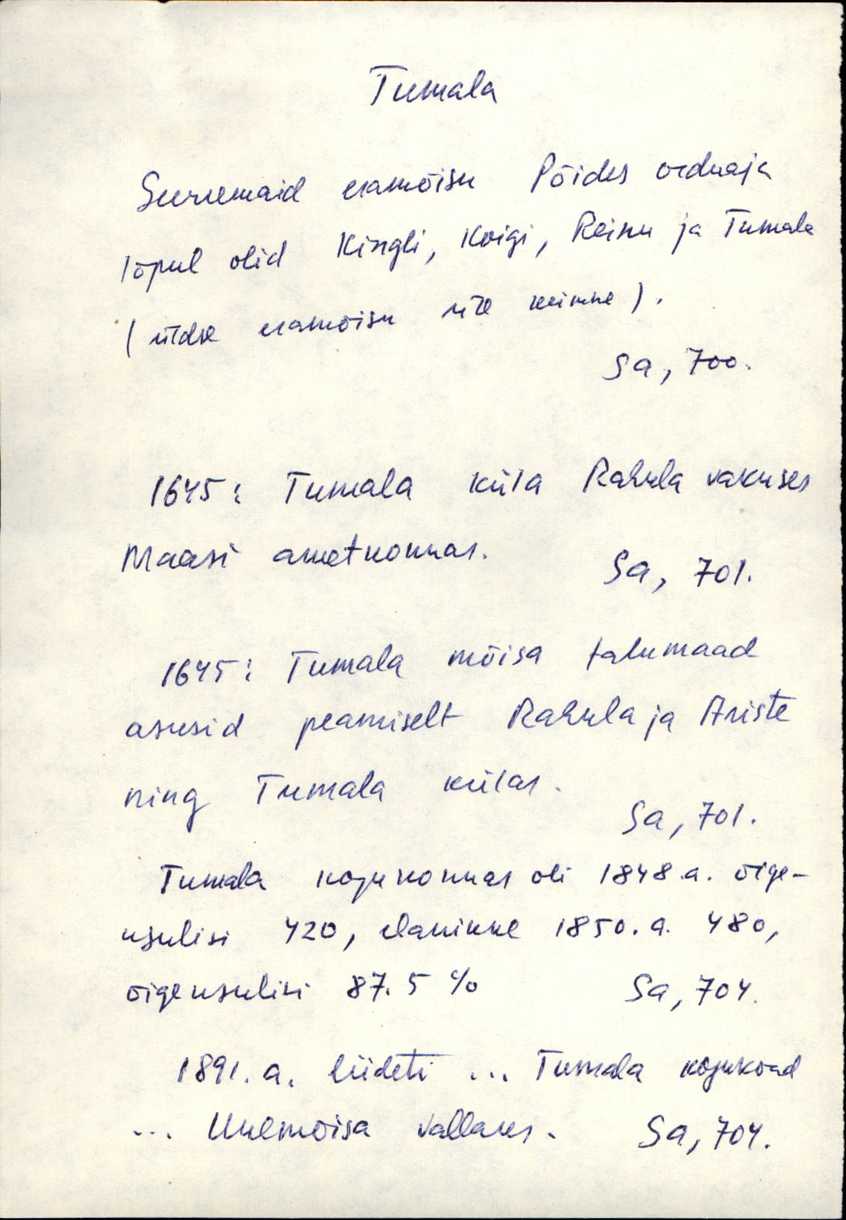 Tumala
Suuremaid eramõisu Põides orduaja
lõpul olid Kingli, Koigi, Reinu ja Tumala
(üldse eramõisu üle kümne).
Sa, 700.
1645: Tumala küla Rahula vakuses
Maasi ametkonnas.
Sa, 701.
1645: Tumala mõisa talumaad
asusid peamiselt Rahula ja Ariste
ning Tumala külas.
Sa, 701.
Tumala kogukonnas oli 1848.a. õige-
usulisi 420, elanikke 1850.a. 480,
õigeusulisi 87.5 %
Sa, 704.
1891.a. liideti ... Tumala kogukond
... Uuemõisa vallaks.
Sa, 704.